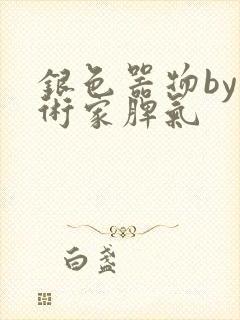 銀色器物by
術家脾氣
白盞